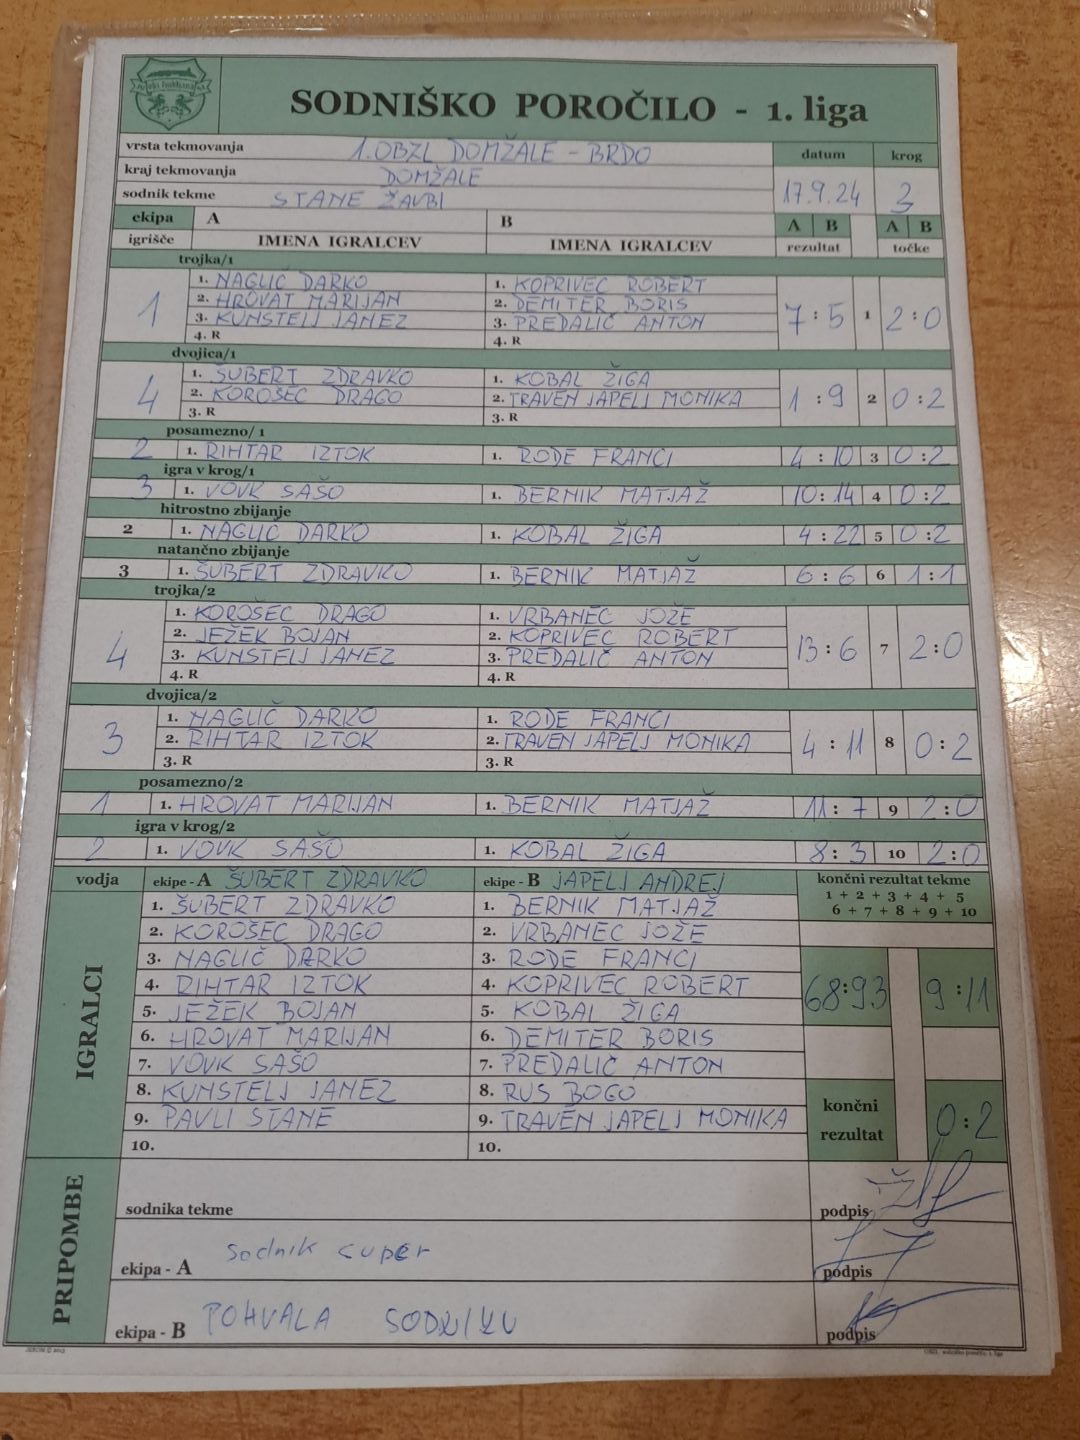 SODNIŠKO POROČILO - 1. liga
vrsta tekmovanja 1. OBZL DOMŽALE - BRDO datum krog
kraj tekmovanja DOMŽALE
sodnik tekme STANE ŽAVBI 17.9.24 3
ekipa A B A B A B
igrišče IMENA IGRALCEV IMENA IGRALCEV rezultat točke
trojka/1
1. NAGLIČ DARKO 1. KOPRIVEC ROBERT
2. HROVAT MARIJAN 2. DEMITER BORIS
1 3. KUNSTELJ JANEZ 3. PREDALIČ ANTON 7 : 5 1 2 : 0
4. R 4. R
dvojica/1
1. ŠUBERT ZDRAVKO 1. KOBAL ŽIGA
4 2. KOROŠEC DRAGO 2. TRAVEN JAPELJ MONIKA 1 : 9 2 0 : 2
3. R 3. R
posamezno/ 1
2 1. RIHTAR IZTOK 1. RODE FRANCI 4 : 10 3 0 : 2
igra v krog/1
3 1. VOVK SAŠO 1. BERNIK MATJAŽ 10 : 14 4 0 : 2
hitrostno zbijanje
2 1. NAGLIČ DARKO 1. KOBAL ŽIGA 4 : 22 5 0 : 2
natančno zbijanje
3 1. ŠUBERT ZDRAVKO 1. BERNIK MATJAŽ 6 : 6 6 1 : 1
trojka/2
1. KOROŠEC DRAGO 1. VRBANEC JOŽE
2. JEŽEK BOJAN 2. KOPRIVEC ROBERT
4 3. KUNSTELJ JANEZ 3. PREDALIČ ANTON 13 : 6 7 2 : 0
4. R 4. R
dvojica/2
1. NAGLIČ DARKO 1. RODE FRANCI
3 2. RIHTAR IZTOK 2. TRAVEN JAPELJ MONIKA 4 : 11 8 0 : 2
3. R 3. R
posamezno/2
1 1. HROVAT MARIJAN 1. BERNIK MATJAŽ 11 : 7 9 2 : 0
igra v krog/2
2 1. VOVK SAŠO 1. KOBAL ŽIGA 8 : 3 10 2 : 0
vodja ekipe - A ŠUBERT ZDRAVKO ekipe - B JAPELJ ANDREJ končni rezultat tekme
1 + 2 + 3 + 4 + 5
6 + 7 + 8 + 9 + 10
IGRALCI
1. ŠUBERT ZDRAVKO 1. BERNIK MATJAŽ
2. KOROŠEC DRAGO 2. VRBANEC JOŽE
3. NAGLIČ DARKO 3. RODE FRANCI
4. RIHTAR IZTOK 4. KOPRIVEC ROBERT 68:93 9 : 11
5. JEŽEK BOJAN 5. KOBAL ŽIGA
6. HROVAT MARIJAN 6. DEMITER BORIS
7. VOVK SAŠO 7. PREDALIČ ANTON
8. KUNSTELJ JANEZ 8. RUS BOGO
9. PAVLI STANE 9. TRAVEN JAPELJ MONIKA
10. 10.
končni
rezultat 0 : 2
PRIPOMBE
sodnika tekme podpis
ekipa - A sodnik cuper podpis
ekipa - B POHVALA SODNIKU podpis